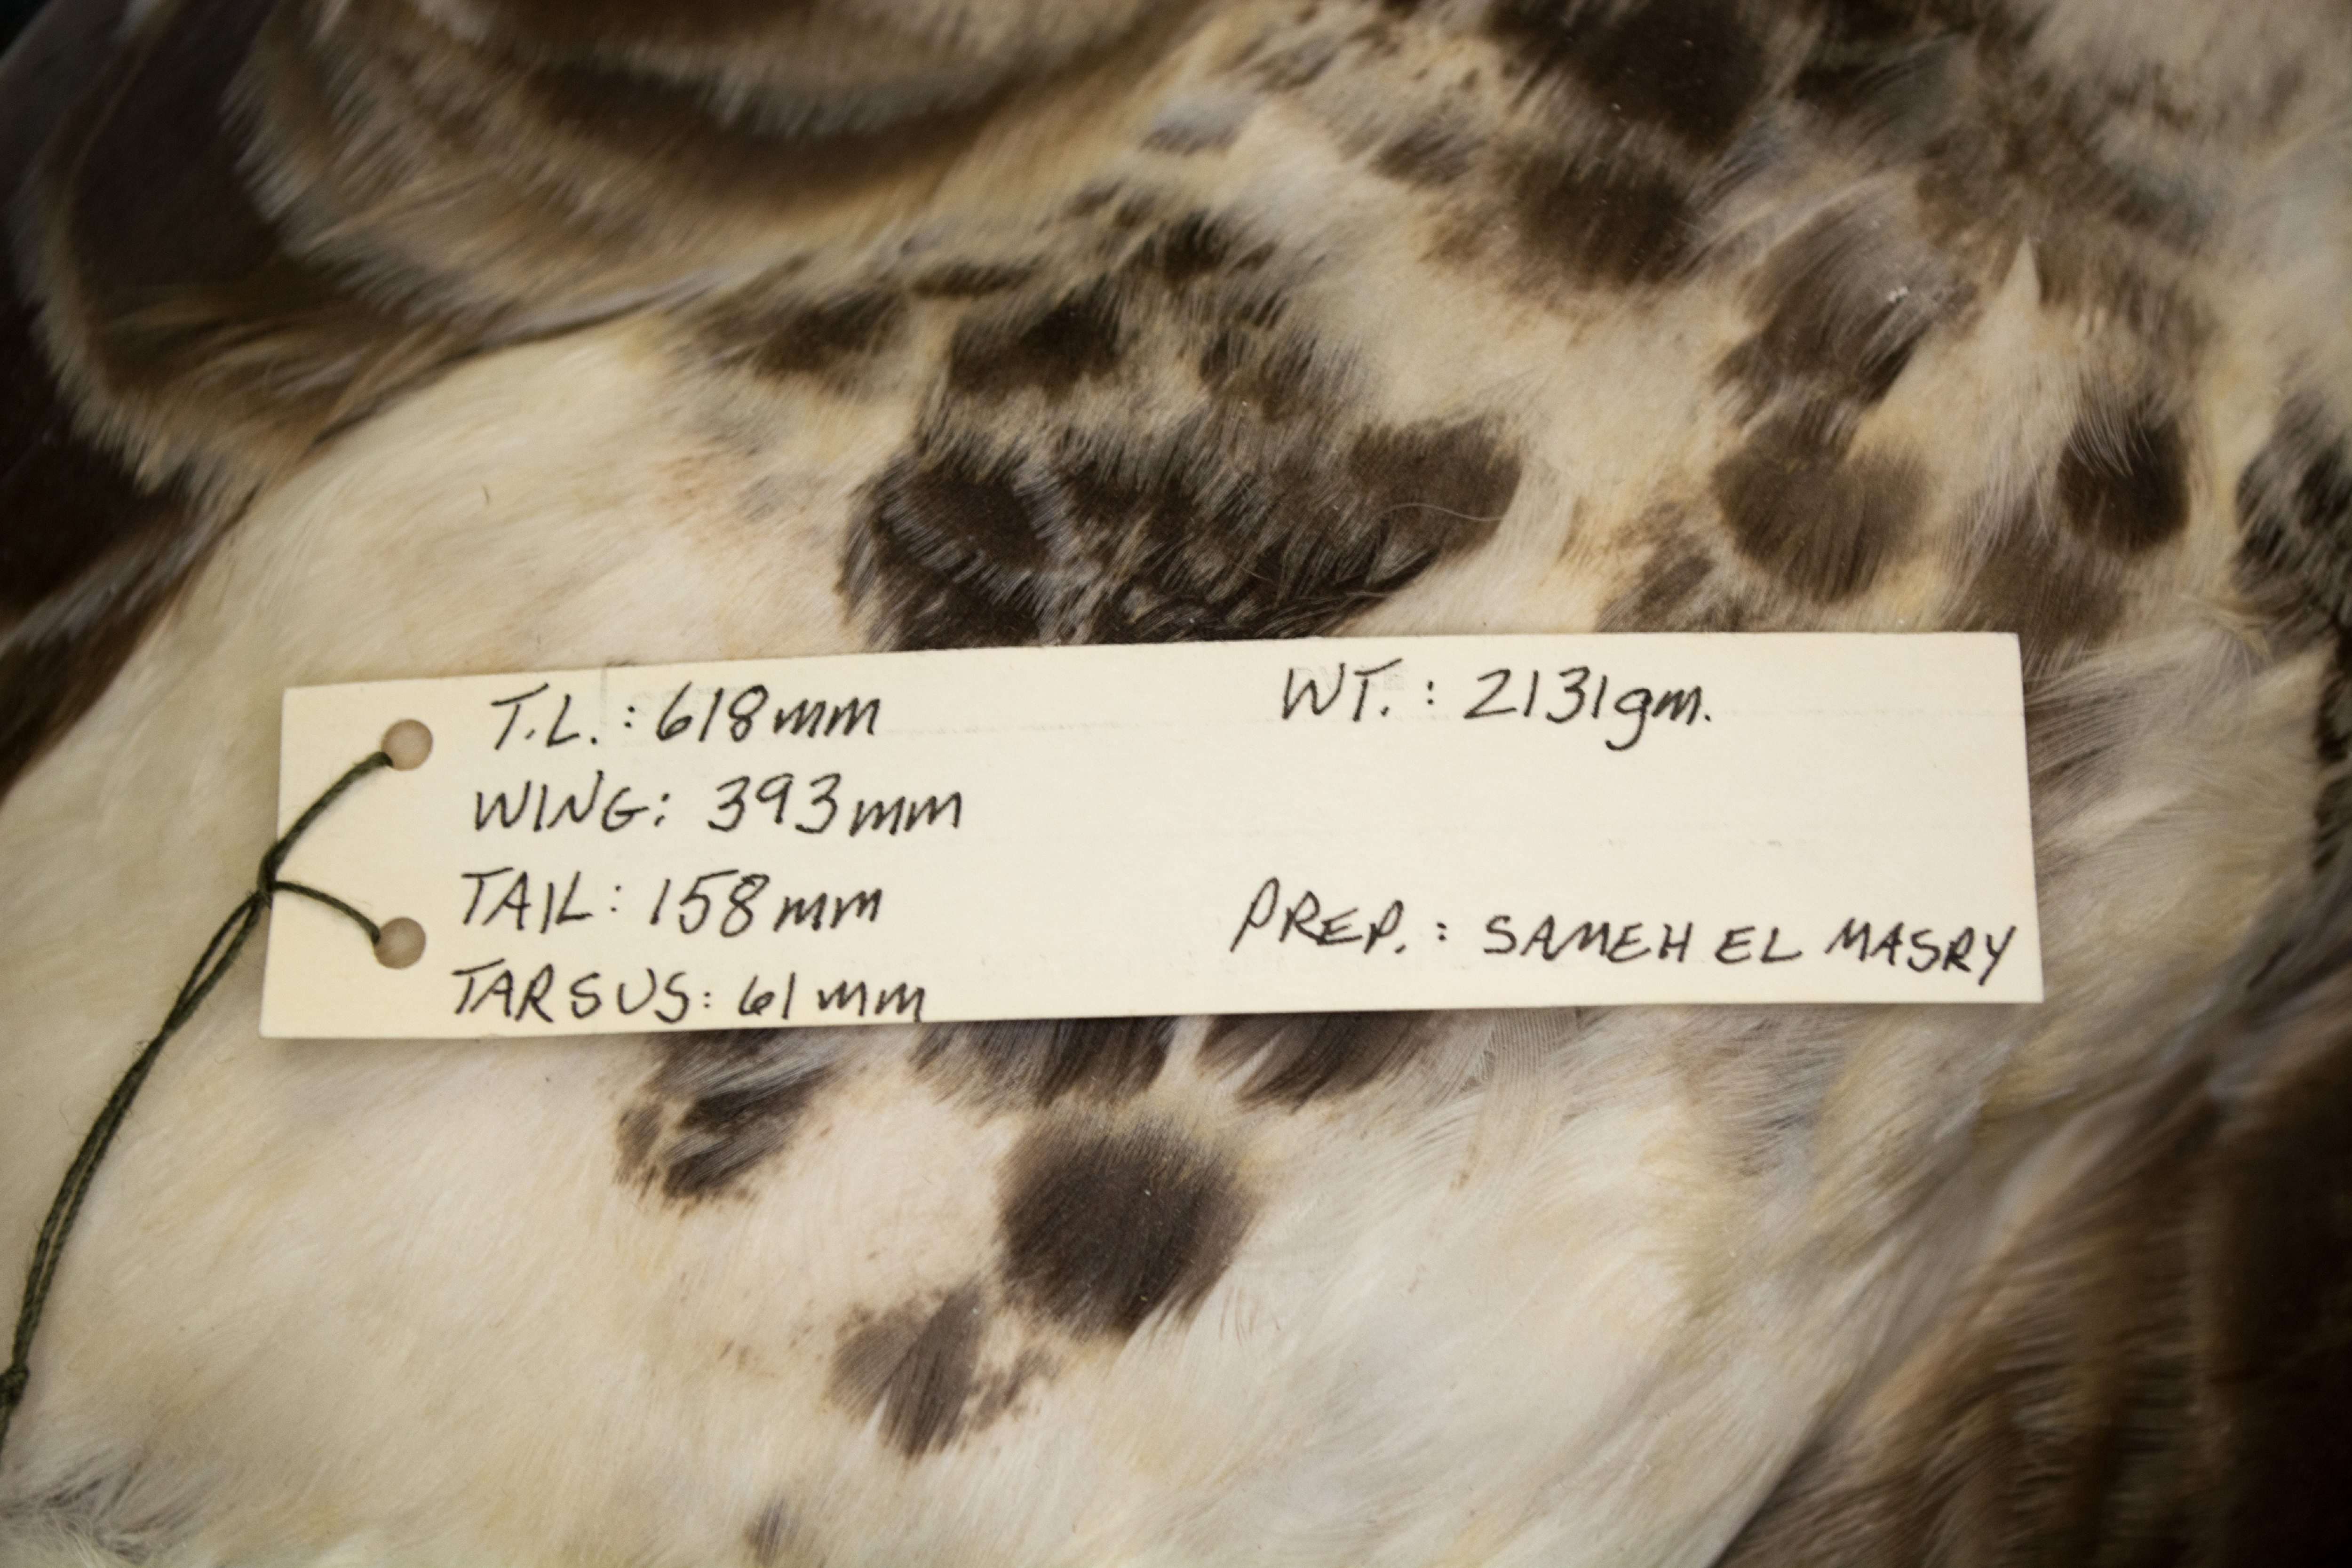 T.L.: 618mm
WT.: 2131gm.
WING: 393mm
TAIL: 158mm
PREP.: SAMEH EL MASRY
TARSUS: 61mm